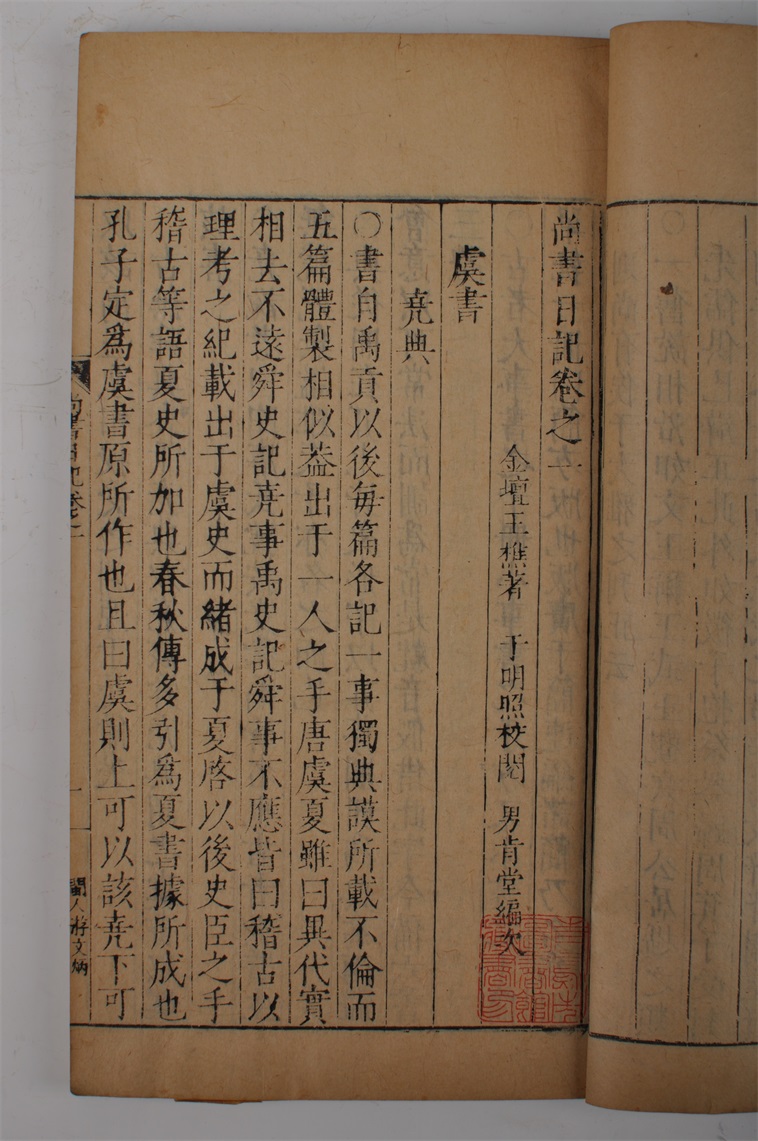 尚書日記卷之一
金壇王樵著 于明照校閱 男肯堂編次
虞書
堯典
○書自禹貢以後每篇各記一事獨典謨所載不倫而
五篇體製相似葢出于一人之手唐虞夏雖曰異代實
相去不遠舜史記堯事禹史記舜事不應皆曰稽古以
理考之紀載出于虞史而緒成于夏啓以後史臣之手
稽古等語夏史所加也春秋傳多引爲夏書據所成也
孔子定爲虞書原所作也且曰虞則上可以該堯下可
尚書日記卷一
閩人游文炳